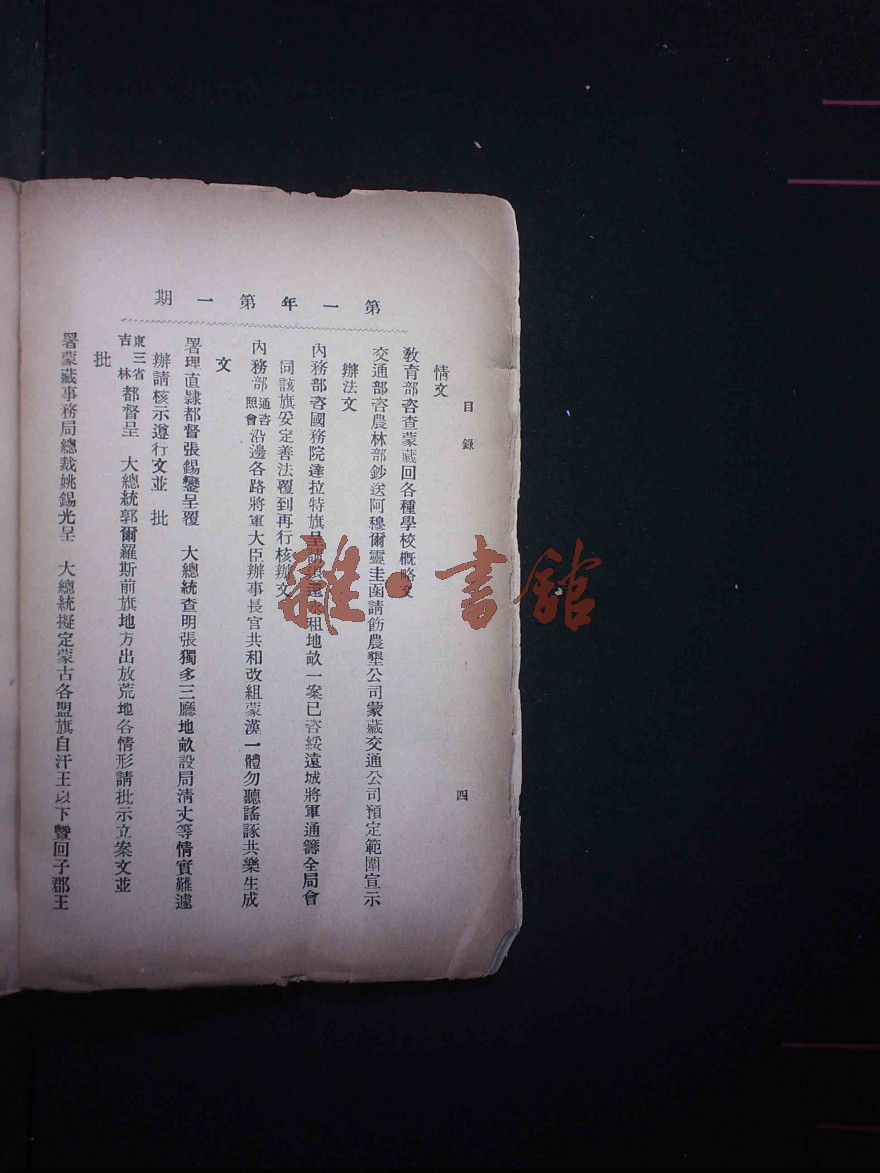 第一年第一期
目錄
四
情文
教育部咨查蒙藏回各種學校概略文
交通部咨農林部鈔送阿穆爾靈圭函請飭農墾公司蒙藏交通公司預定範圍宣示
辦法文
內務部咨國務院達拉特旗呈請退還永租地畝一案已咨綏遠城將軍通籌全局會
同該旗妥定善法覆到再行核辦文
內務部通咨照會沿邊各路將軍大臣辦事長官共和改組蒙漢一體勿聽謠諑共樂生成
文
署理直隸都督張錫鑾呈覆 大總統查明張獨多三廳地畝設局清丈等情實難遽
辦請核示遵行文並 批
東三省吉林都督呈 大總統郭爾羅斯前旗地方出放荒地各情形請批示立案文並
批
署蒙藏事務局總裁姚錫光呈 大總統擬定蒙古各盟旗自汗王以下暨回子郡王
雜·書館